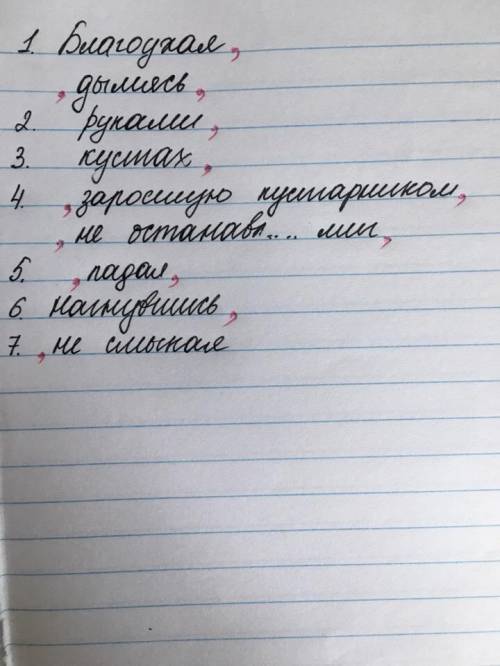 1. Благоухая,
, дымясь,
2. руками,
3. кустах,
4. , заросшую кустарником,
, не останавл.... миг,
5. , падал,
6 нагнувшись,
7. , не смыкая